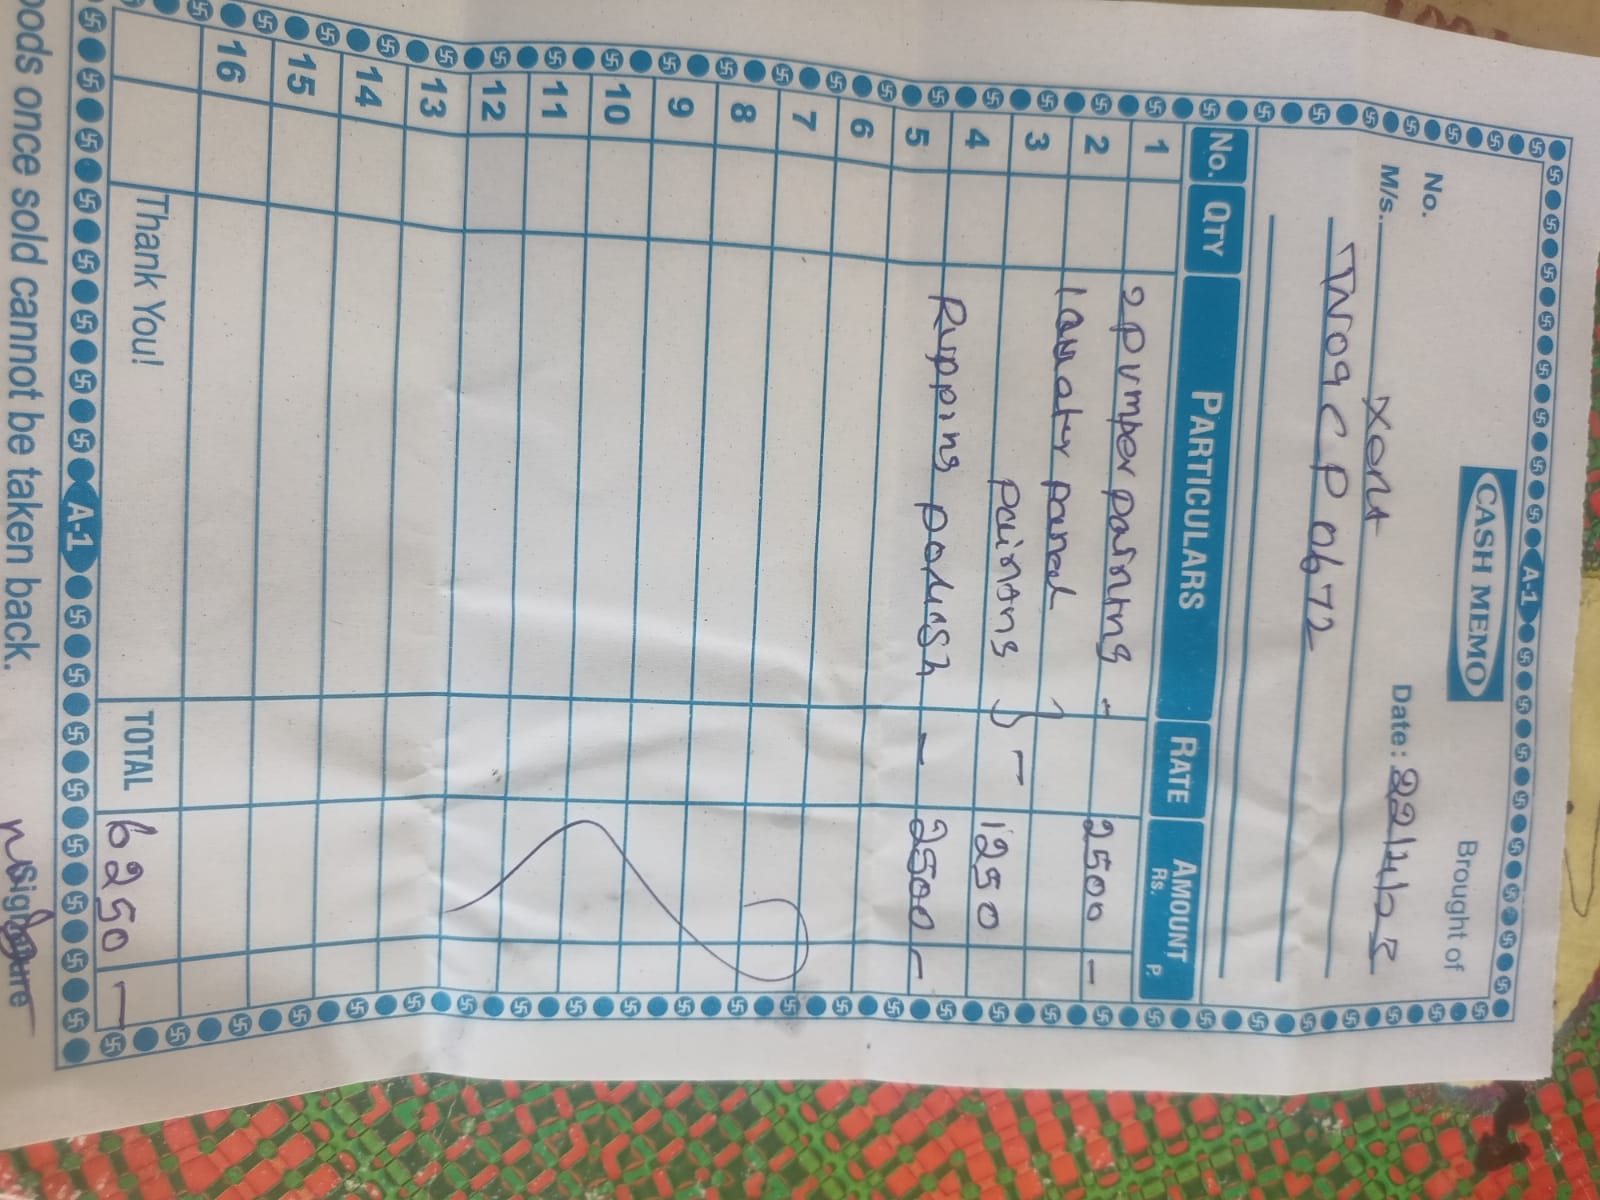 A-1
CASH MEMO
No.
Brought of
M/s. Xent
Date: 22/11/25
TN09CP0672
No. QTY PARTICULARS RATE AMOUNT
Rs. P.
1 2 pumper painting - 2500 -
2
3 panel }
4 painting } - 1250
5 Rupping polish - 2500 -
6
7
8
9
10
11
12
13
14
15
16
Thank You! TOTAL 6250 -
A-1
oods once sold cannot be taken back.
Signature